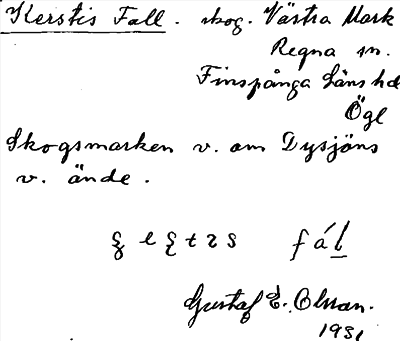 Kerstis Fall. skog. Västra Mark
Regna sn.
Finspånga läns hd
Ögl
Skogsmarken v. om Dysjöns
v. ände.
fál
Gustaf E. Olsson.
1931